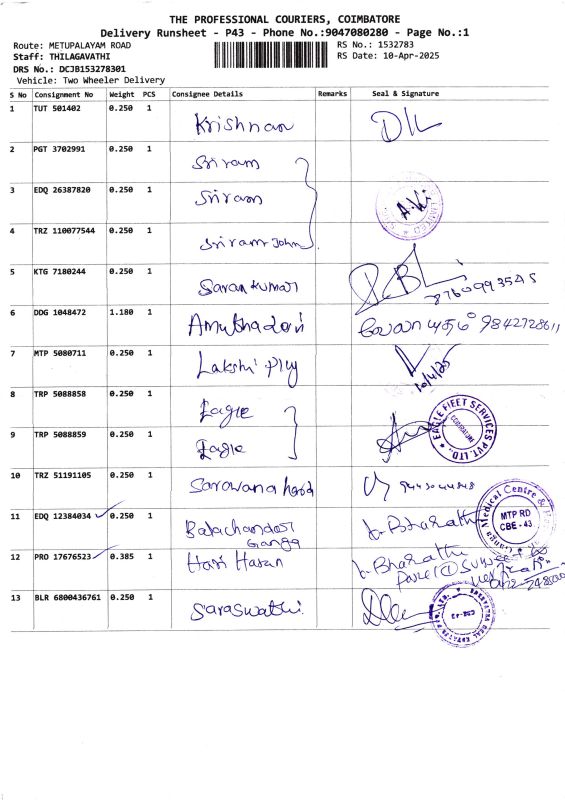 THE PROFESSIONAL COURIERS, COIMBATORE
Delivery Runsheet - P43 - Phone No.:9047080280 - Page No.:1
Route: METUPALAYAM ROAD RS No.: 1532783
Staff: THILAGAVATHI RS Date: 10-Apr-2025
DRS No.: DCJB153278301
Vehicle: Two Wheeler Delivery
S No Consignment No Weight PCS Consignee Details Remarks Seal & Signature
1 TUT 501402 0.250 1 Krishnan
2 PGT 3702991 0.250 1 Sriram
3 EDQ 26387820 0.250 1 Sriram
4 TRZ 110077544 0.250 1 Sriram John
5 KTG 7180244 0.250 1 Saran kumar 8760993545
6 DDG 1048472 1.180 1 Amuthadevi 9842728611
7 MTP 5080711 0.250 1 Lakshi Ply 10/4/25
8 TRP 5088858 0.250 1 Eagle
EAGLE FLEET SERVICES PVT.LTD. COIMBATORE
9 TRP 5088859 0.250 1 Eagle
10 TRZ 51191105 0.250 1 Sarawana
11 EDQ 12384034 0.250 1 Balachandar Ganga Bharathi
Ganga Medical Centre &
MTP RD
CBE - 43
12 PRO 17676523 0.385 1 Hari Haran Bharathi
13 BLR 6800436761 0.250 1 Saraswathi
CBE-43